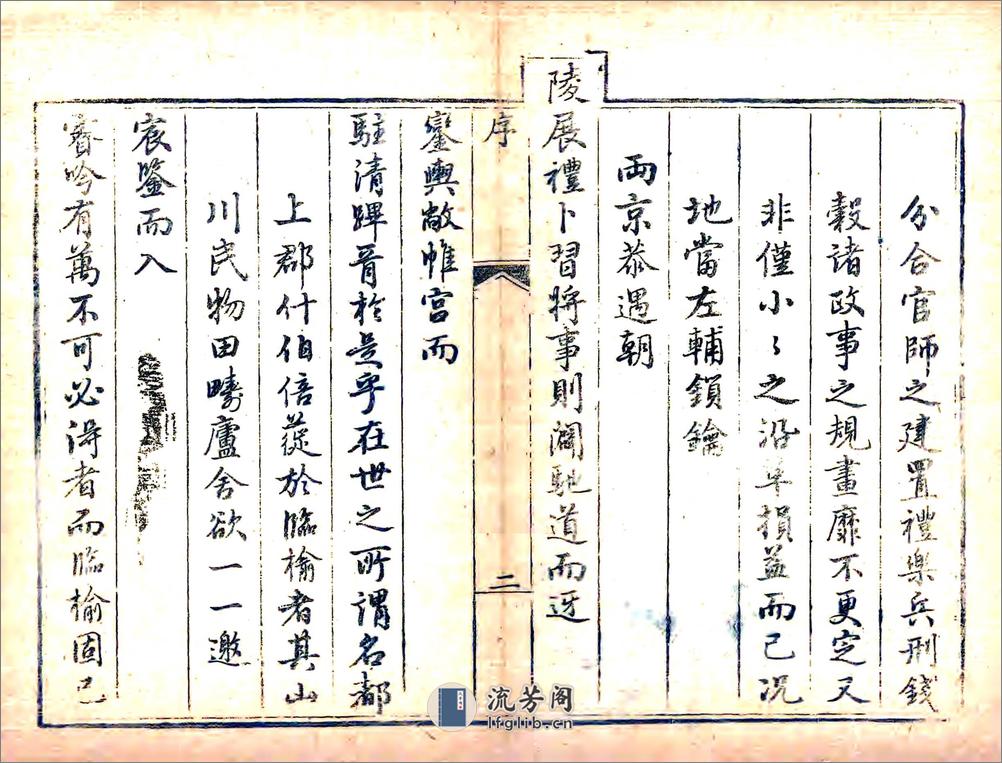 分合官師之建置禮樂兵刑錢
穀諸政事之規畫靡不更定又
非僅小〻之沿革損益而已況
地當左輔鎖鑰
兩京恭遇朝
陵展禮卜習將事則闢馳道而迓
序
二
鑾輿敞帷宫而
駐清蹕胥於是乎在世之所謂名都
上郡什伯倍蓰於臨榆者其山
川民物田疇廬舍欲一一邀
宸鑒而入
睿吟有萬不可必得者而臨榆固已
流芳阁
lfglib.cn